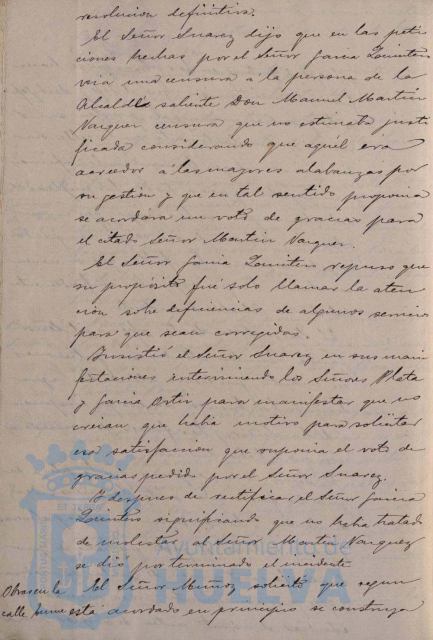 resolucion definitiva.
El Señor Suarez dijo que en las peti
ciones hechas por el Señor Garcia Quintero
veia una censura á la persona de la
Alcalde saliente Don Manuel Martin
Vazquez censura que no estimaba justi
ficada considerando que aquél era
acreedor á las mayores alabanzas por
su gestion y que en tal sentido proponia
se acordara un voto de gracias para
el citado Señor Martin Vazquez.
El Señor Garcia Quintero repuso que
su propósito fué solo llamar la aten
cion sobre deficiencias de algunos servicios
para que sean corregidas.
Insistió el Señor Suarez en sus mani
festaciones interviniendo los Señores Plata
y Garcia Ortiz para manifestar que no
creian que habia motivo para solicitar
esa satisfaccion que suponia el voto de
gracias pedido por el Señor Suarez.
Y despues de rectificar el Señor Garcia
Quintero significando que no habia tratado
de molestar al Señor Martin Vazquez
se dió por terminado el incidente.
Obras en la
calle
El Señor Muñoz solicitó que segun
está acordado en principio se construya
Ayuntamiento de
HUELVA